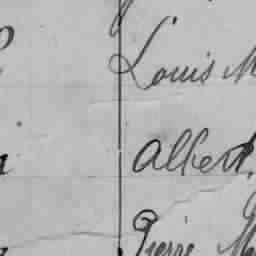 Louis M
Albert
Pierre Ma